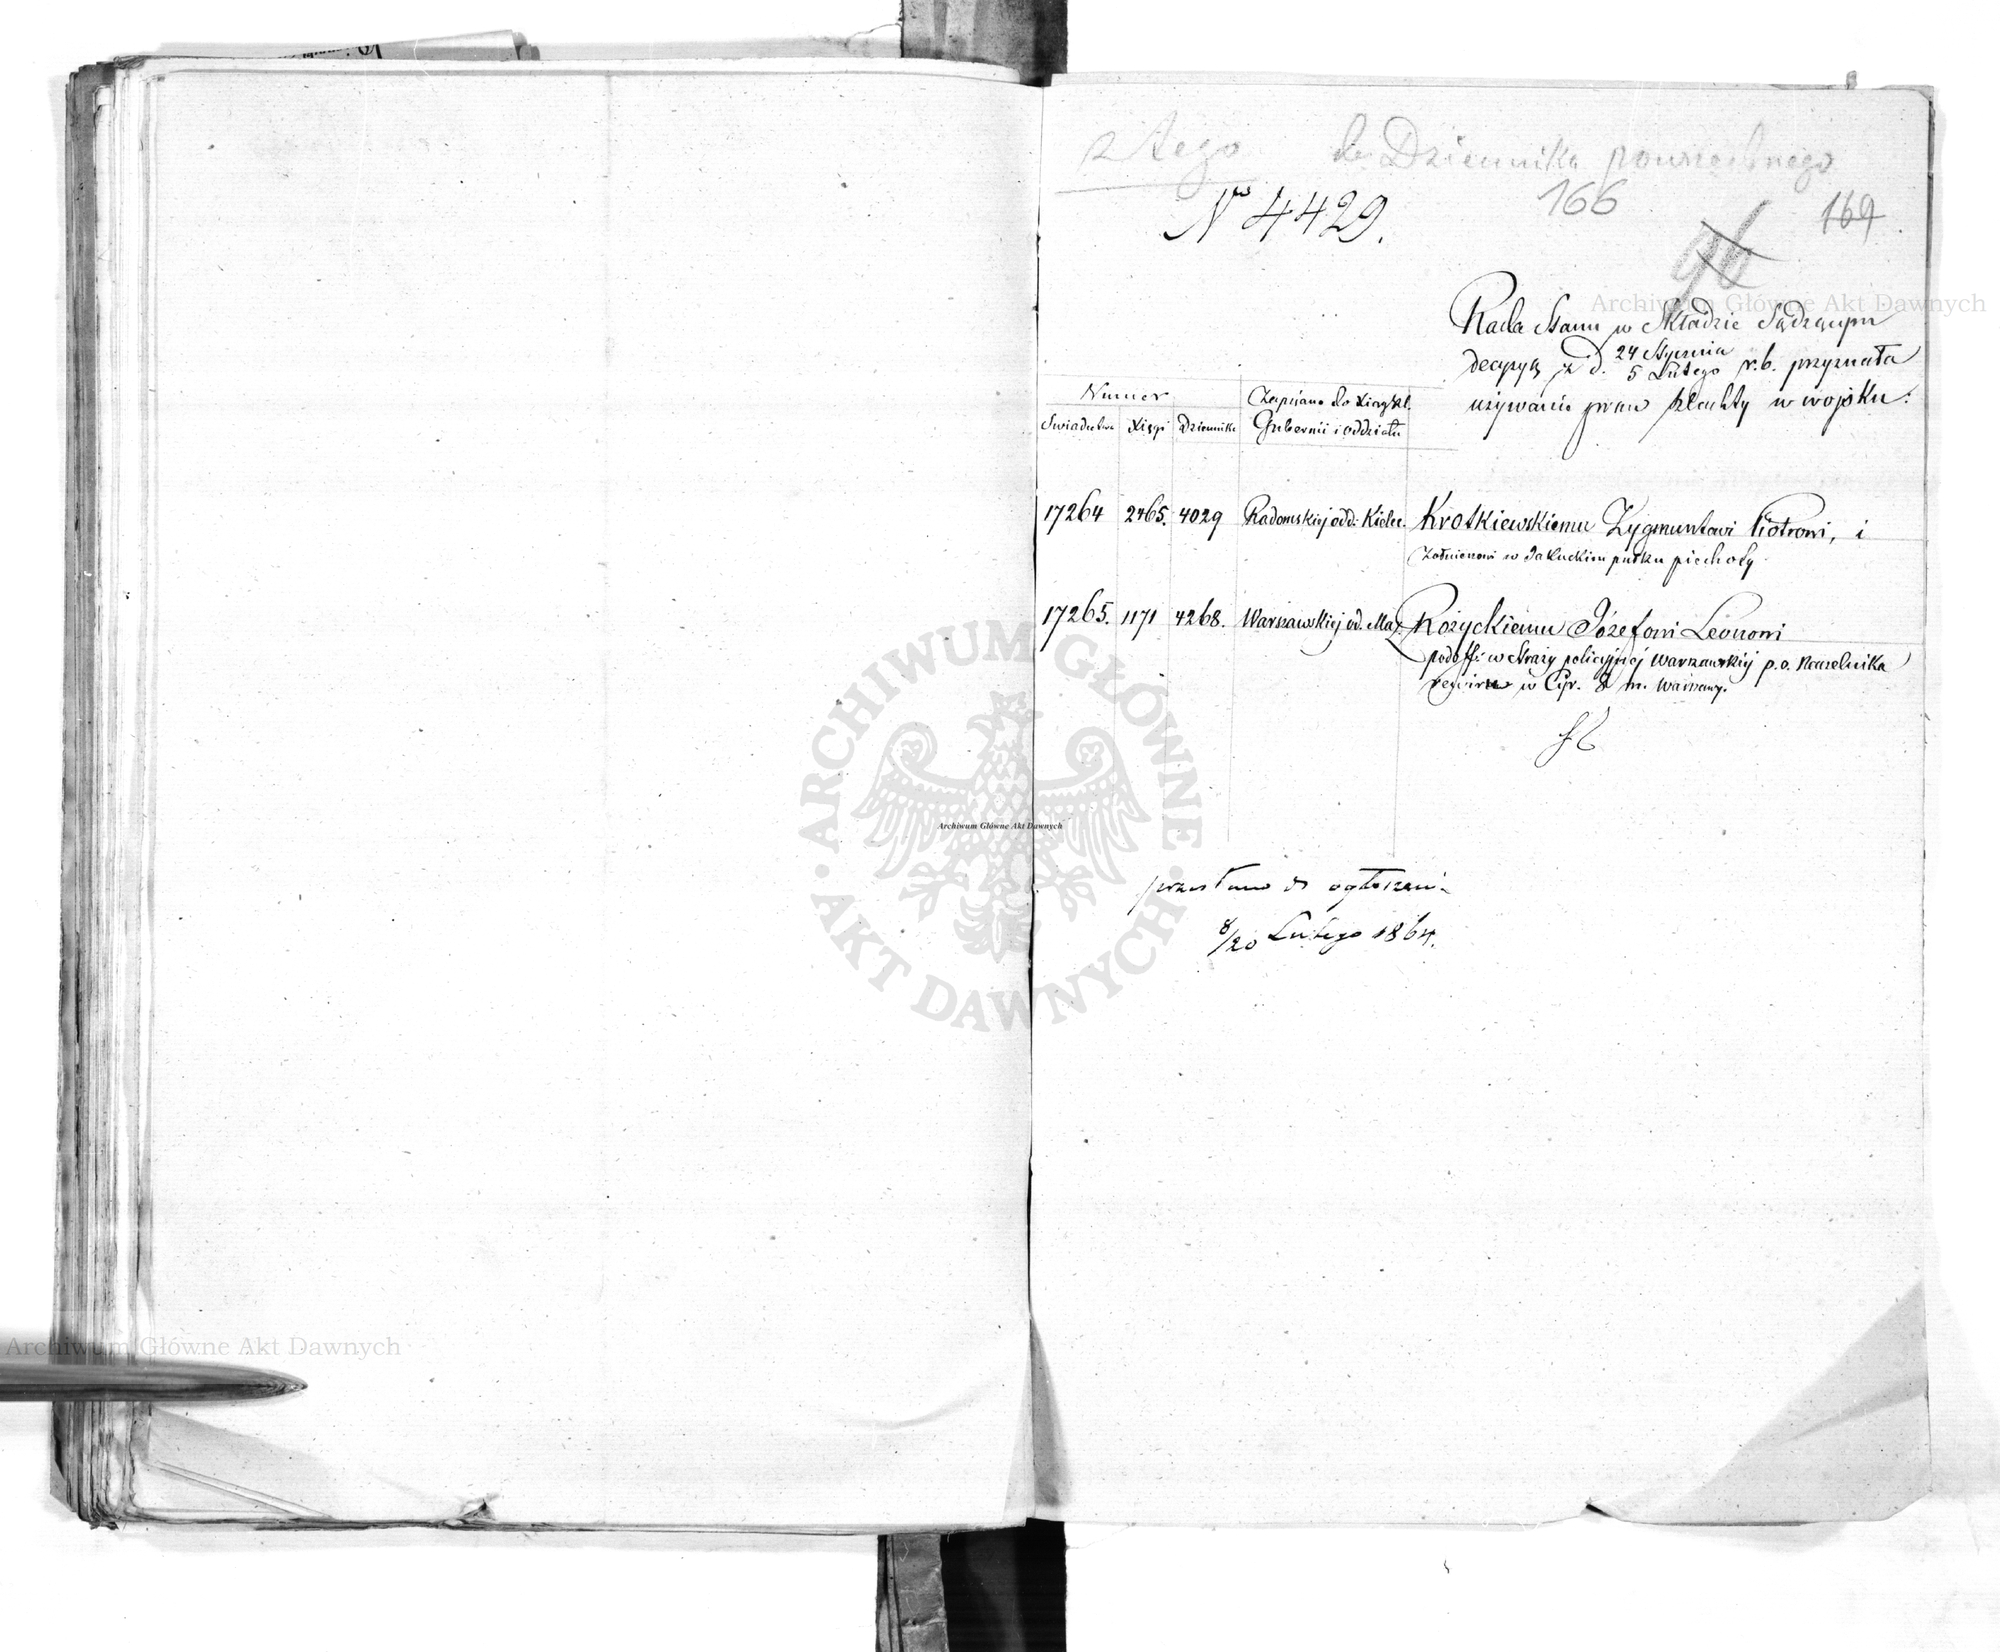 2 tego do Dziennika powszechnego
No 4429.
166
169
96
Rada Stanu w Składzie Sądzącym
decyzyą z d. 24 Stycznia r.b. przyznała
5 Lutego
używanie praw szlachty w wojsku:
Numer
Świadectwa Xięgi Dziennika
Zapisano do Xiąg szl.
Gubernii i oddziału
17264 2465. 4029 Radomskiej odd: Kielec. Krotkiewskiemu Zygmuntowi Piotrowi, i
Żołnierowi w Jakuckim pułku piechoty
17265. 1171 4268. Warszawskiej od. Maz. Rożyckiemu Józefowi Leonowi
podoff: w Straży policyjnej Warszawskiej p.o. Naczelnika
rewiru w Cyr. 8 m. Warszawy.
przesłano do ogłoszenia
8/20 Lutego 1864.
Archiwum Główne Akt Dawnych
ARCHIWUM GŁÓWNE
AKT DAWNYCH
Archiwum Główne Akt Dawnych
Archiwum Główne Akt Dawnych